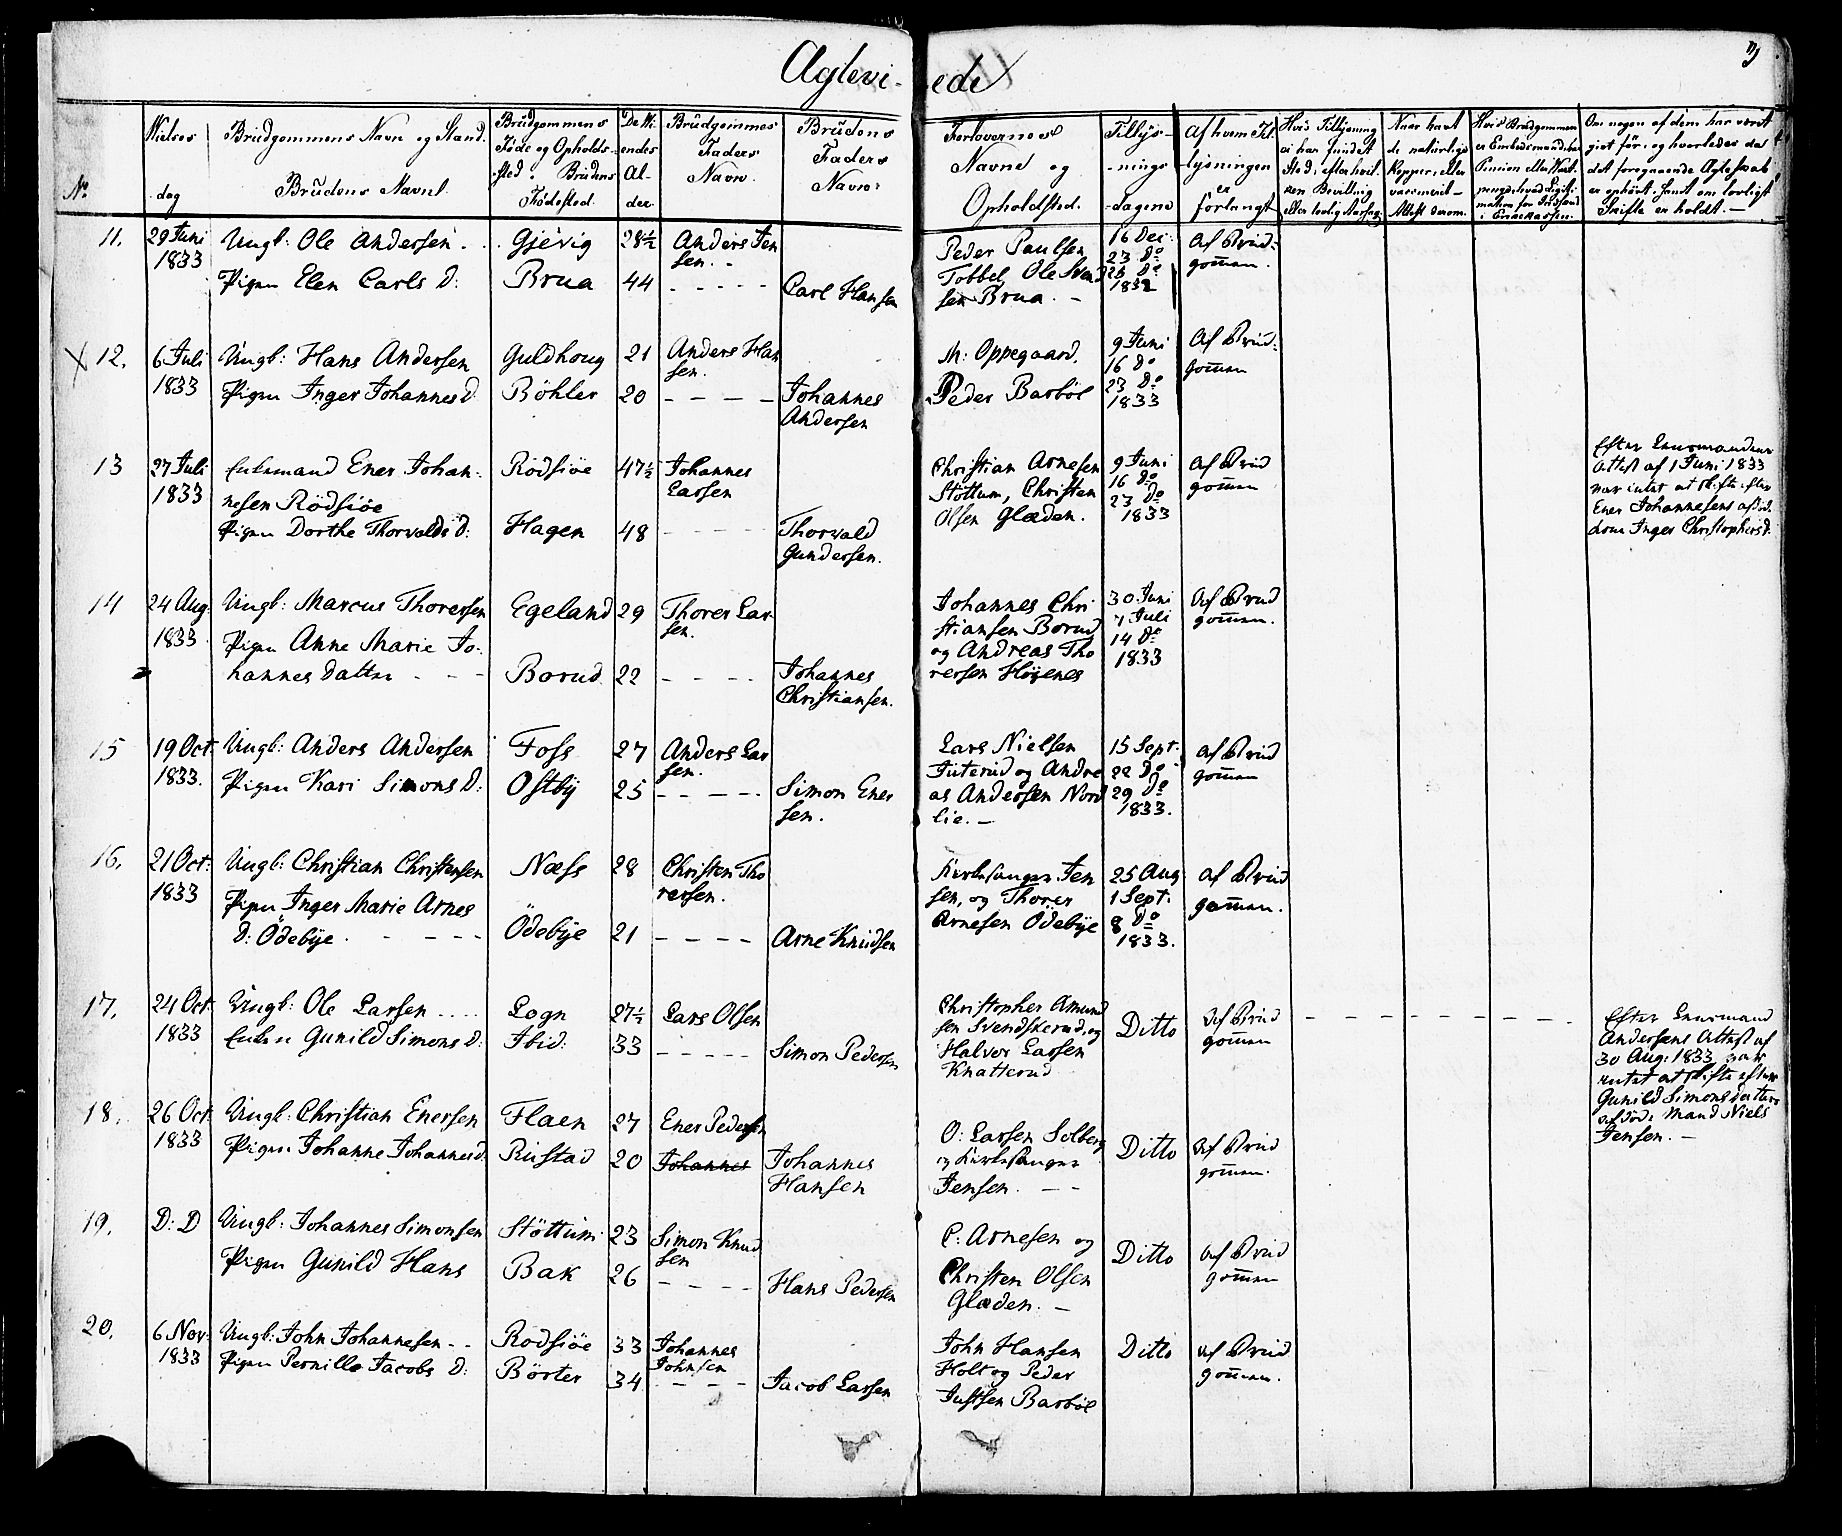 Ægtevi- ede
No
Vielses dag
Brudgommens Navn og Stand. Brudens Navn.
Brudgommens Føde og Opholds-sted. Brudens Fødested.
De Viendes Alder
Brudgommens Faders Navn.
Brudens Faders Navn.
Forlovernes Navne og Opholdsted.
Tillys-nings-dagene
Af hvem Tillysningen er forlangt
11. 29 Juni 1833
Ungk: Ole Andersen Gjevig 28½ Anders Jensen.
Pigen Elen Carls D: Brua 44 Carl Hansen
Peder Paulsen Tobbel, Ole Svendsen Brua.
16 Dec: 23 Do 26 Do 1832
Af Brudgommen.
12. 6 Juli 1833
Ungk: Hans Andersen Guldhoug 21 Anders Hansen.
Pigen Inger Johannesd. Böhler 20 Johannes Andersen
M: Oppegaard. Peder Barböl
9 Juni 16 Do 23 Do 1833
Af Brudgommen
13 27 Juli 1833
Enkemand Ener Johannesen Rödsiöe Rödsiöe 47½ Johannes Larsen
Pigen Dorthe Thorvalds D: Hagen 48 Thorvald Gundersen.
Christian Arnesen Stöttum, Christen Olsen Glæden.
9 Juni 16 Do 23 Do 1833
Af Brudgommen
Efter Lensmandens Attest af 1 Juni 1833 var intet at skifte efter Ener Johannesens afdöde Kone Inger Christophersd:
14 24 Aug 1833
Ungk: Marcus Thoresen Egeland 29 Thorer Larsen.
Pigen Anne Marie Johannes Datter Borud 22 Johannes Christiansen.
Johannes Christiansen Borud og Andreas Thoresen Höyenes
30 Juni 7 Juli 14 Do 1833
Af Brudgommen.
15 19 Oct. 1833.
Ungk: Anders Andersen Foss 27 Anders Larsen.
Pigen Kari Simons D: Ostby 25 Simon Enersen.
Lars Nielsen Juterud og Andreas Andersen Nordlie.
15 Sept. 22 Do 29 Do 1833.
Af Brudgommen
16. 21 Oct: 1833
Ungk: Christian Christensen Næss 28 Christen Thoresen.
Pigen Inger Marie Arnes D: Ödebye. Ödebye 21 Arne Knudsen
Kirkesanger Jensen, og Thorer Arnesen Ödebye
25 Aug 1 Sept. 8 Do 1833.
Af Brudgommen.
17. 24 Oct. 1833
Ungk: Ole Larsen Logn 27½ Lars Olsen
Enken Gunild Simons D: Ibid: 33 Simon Pedersen
Christopher Amundsen Svendskerud, og Halvor Larsen Knatterud
Ditto
Af Brudgommen
Efter Lensmand Andersens Attest af 30 Aug: 1833 var intet at skifte efter Gunild Simonsdatters afdöde Mand Niels Jensen.
18. 26 Oct. 1833
Ungk: Christian Enersen Flaen 27 Ener Pedersen
Pigen Johanne Johannesd. Rustad 20 Johannes Johannes Hansen
O: Larsen Solberg og Kirkesanger Jensen.
Ditto
Af Brudgommen.
19. D: D
Ungk: Johannes Simonsen Stöttum 23 Simon Knudsen
Pigen Gunild Hans Bak 26 Hans Pedersen
C: Arnesen og Christen Olsen Glæden.
Ditto
Af Brudgommen
20. 6 Nov: 1833
Ungk: John Johannesen Rodsiöe 33 Johannes Johnsen
Pigen Pernille Jacobs D: Börter 34 Jacob Larsen
John Hansen Holt og Peder Justsen Barböl
Ditto
Af Brudgommen.